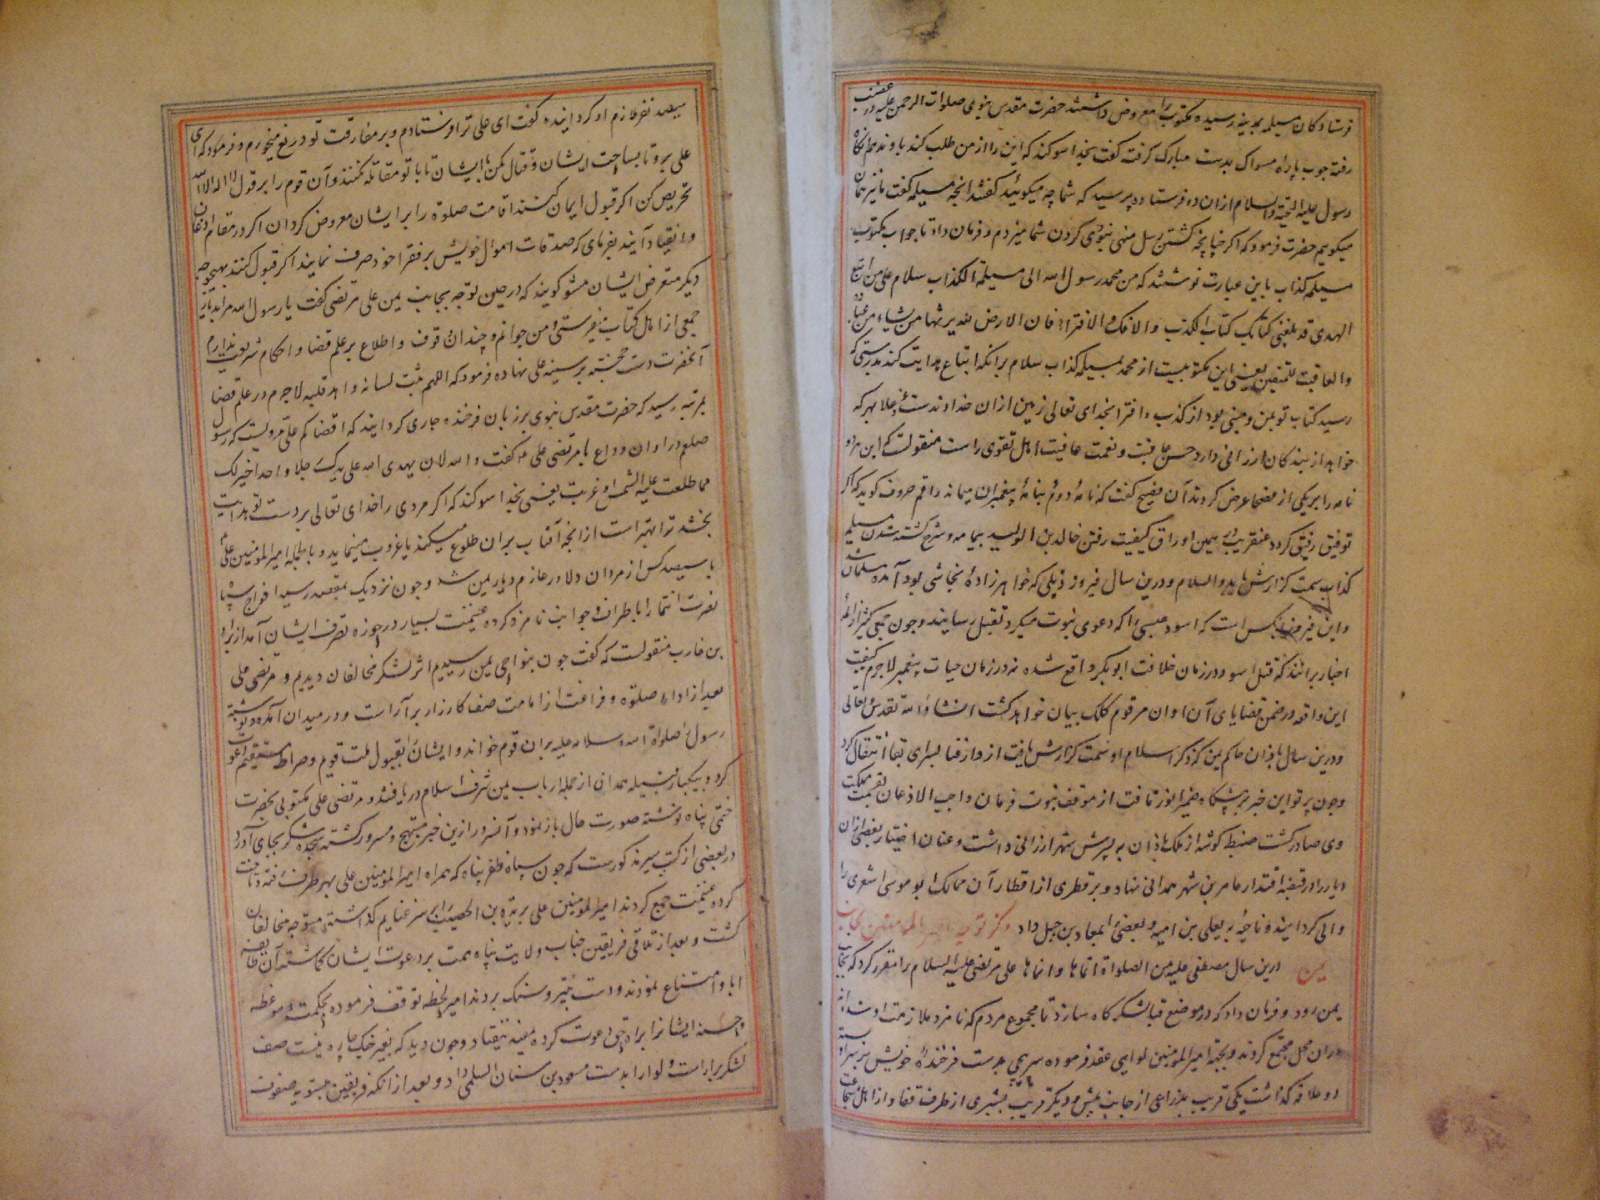 فرستادگان مسیلمه بمدینه رسیده مکتوب را معروض داشتند حضرت مقدس نبوی صلوات الرحمن علیه در غضب
رفت چوب پاره مسواک بدست مبارک گرفت گفت بخدا سوکند که این را از من طلب کند باو ندهم انکاه
رسول علیه التحیة والسلام ازان دو فرستاده پرسید که شما چه میکوئید گفتند انچه مسیلمه گفت ما نیز همان
میکویم حضرت فرمود که اگر چنانچه کشتن رسل منهی نبودی کردن شما میزدم و فرمان داد تا جواب مکتوب
مسیلمه کذاب باین عبارت نوشتند که من محمد رسول الله الی مسیلمة الکذاب سلام علی من اتبع
الهدی قد بلغنی کتابک کتاب الکذب والافک والافتراء فان الارض لله یرثها من یشاء من عباده
والعاقبت للمتقین یعنی این مکتوبیست از محمد بمسیلمه کذاب سلام برانکه اتباع هدایت کند بدرستی که
رسید کتاب تو بمن و مبنی بود از کذب و افترا بخدای تعالی زمین ازان خداوندست بهر که
خواهد از بندکان ارزانی دارد حسن عاقبت و نعمت عافیت اهل تقوی راست منقولست که این هر دو
نامه را بریکی از فصحا عرض کردند آن فصیح گفت که نامه دوم بنامه پیغمبران میماند راقم حروف کوید که اگر
توفیق رفیق کردد عنقریب در همین اوراق کیفیت رفتن خالد بن الولید بیمامه و شرح کشته شدن مسیلمه
کذاب سمت کزارش یابد والسلام و درین سال فیروز دیلمی که خواهرزاده نجاشی بود آمده مسلمان شد
و این فیروز آنکس است که اسود عنسی را که دعوی نبوت میکرد بقتل رسانید و چون جمعی کثیر از ائمه
اخبار برانند که قتل اسود در زمان خلافت ابوبکر واقع شده نه در زمان حیات پیغمبر لاجرم کیفیت
این واقعه در ضمن قضایای آن اوان مرقوم کلک بیان خواهد کشت انشاء الله تقدس و تعالی
و درین سال باذان حاکم یمن که ذکر اسلام او سمت کزارش یافت از دار فنا بسرای بقا انتقال کرد
و چون پرتو این خبر بر پیشکاه ضمیر انور تافت از موقف نبوت فرمان واجب الاذعان بقسمت مملکت
وی صادر کشت ضبط کوشه از ملک باذان به پسرش شهر ارزانی داشت و عنان اختیار بعضی ازان
دیار را در قبضه اقتدار عامر بن شهر همدانی نهاد و بر قطری از اقطار آن ممالک ابو موسی اشعری را
والی کردانید و ناحیه به یعلی بن امیه و بعضی بمعاذ بن جبل داد ذکر توجه امیر المؤمنین بجانب
یمن درین سال مصطفی علیه من الصلواة اتمها و انماها علی مرتضی علیه السلام را مقرر کرد که بجانب
یمن رود و فرمان داد که در موضع قبا لشکرکاه سازد تا مجموع مردم که نامزد ملازمت او شده اند
دران محل مجتمع کردند و بجهة امیر المؤمنین لوایی عقد فرموده بدست فرخنده خویش بر سر او بسته
دو علاقه کذاشت یکی قریب بذراعی از جانب پیش و دیگر قریب بشبری از طرف قفا و از اهل شجاعت
سیصد نفر ملازم او کردانیده گفت ای علی ترا فرستادم و بر مفارقت تو دریغ میخورم و فرمود که ای
علی برو تا بساحت ایشان و قتال مکن با ایشان تا با تو مقاتله نکنند و آن قوم را بر قول لا اله الا الله
تحریص کن اگر قبول ایمان کنند اقامت صلوة را بر ایشان معروض کردان اگر در مقام اذعان
و انقیاد آیند بفرمای که صدقات اموال خویش بر فقراء خود صرف نمایند اگر قبول کنند بهیچوجه
دیگر متعرض ایشان مشو کویند که در حین توجه بجانب یمن علی مرتضی گفت یا رسول الله مرا بدیار
جمعی از اهل کتاب میفرستی و من جوانم و چندان وقوف و اطلاع بر علم قضا و احکام شریعت ندارم
آنحضرت دست خجسته بر سینه علی نهاده فرمود که اللهم ثبت لسانه و اهد قلبه لاجرم در علم قضا
بمرتبه رسید که حضرت مقدس نبوی بر زبان فرخنده جاری کردانیند که اقضاکم علی مرویست که رسول
صلعم در اوان وداع با مرتضی علی گفت والله لان یهدی الله علی یدیک رجلا واحدا خیر لک
مما طلعت علیه الشمس او غربت یعنی بخدا سوکند که اگر مردی را خدای تعالی بر دست تو هدایت
بخشد ترا بهتر است از انچه آفتاب بران طلوع میکند یا غروب مینماید و بالجمله امیر المؤمنین علی
با سیصد کس از مردان دلاور عازم دیار یمن شد و چون نزدیک بمقصد رسید افواج سپاه
نصرت انتما را باطراف و جوانب نامزد کرده غنیمت بسیار در حوزه تصرف ایشان آمد از براء
بن عازب منقولست که گفت چون بنواحی یمن رسیدیم اثر لشکر مخالفان دیدیم و مرتضی علی
بعد از اداء صلوة و فراغت از امامت صف کارزار بر آراست و در میدان آمده نوشته
رسول صلواة الله وسلامه علیه بران قوم خواند و ایشان را بقبول ملت قویم و صراط مستقیم دعوت
کرد و بیکبار قبیله همدان از جمله ارباب یمن شرف اسلام دریافتند و مرتضی علی مکتوبی بحضرت
ختمی پناه نوشته صورت حال باز نمود و آنسرور ازین خبر مبتهج و مسرور کشته سجده شکر بجای آورد
در بعضی از کتب سیر مذکورست که چون سپاه ظفر پناه که همراه امیر المؤمنین علی بهر طرف رفته و تاخت
کرده غنیمت جمع کردند امیر المؤمنین علی بریدة بن الحصیب را بر سر غنایم کذاشته متوجه مخالفان
کشت و بعد از تلاقی فریقین جناب ولایت پناه همت بر دعوت ایشان کماشته آن طایفه
ابا و امتناع نمودند و دست به تیر و سنگ بردند امیر لحظه توقف فرموده بحکمت و موعظه
حسنه ایشانرا براه حق دعوت کرده مفید نیفتاد و چون دید که بغیر جنگ چاره نیست صف
لشکر بیاراست و لوا را بدست مسعود بن سنان السلمی داد و بعد از انکه فریقین تسویه صفوف